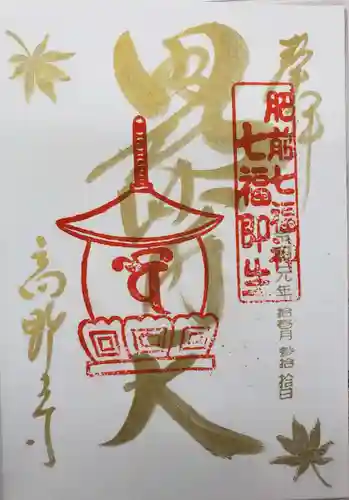 奉拝
肥前七福神
七福即生
令和元年 拾壹月
毘沙門天
高野寺